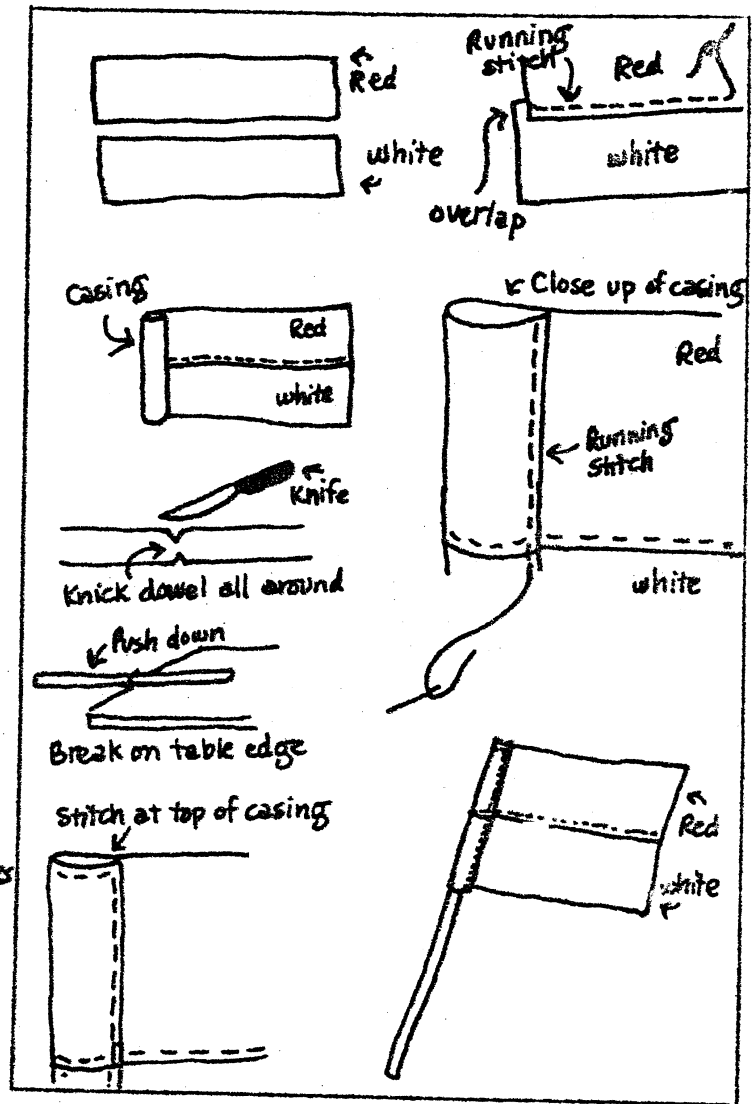 Red
white
Running
stitch
Red
white
overlap
Casing
Red
white
Close up of casing
Red
Running
Stitch
white
Knife
Knick dowel all around
Push down
Break on table edge
Stitch at top of casing
Red
white